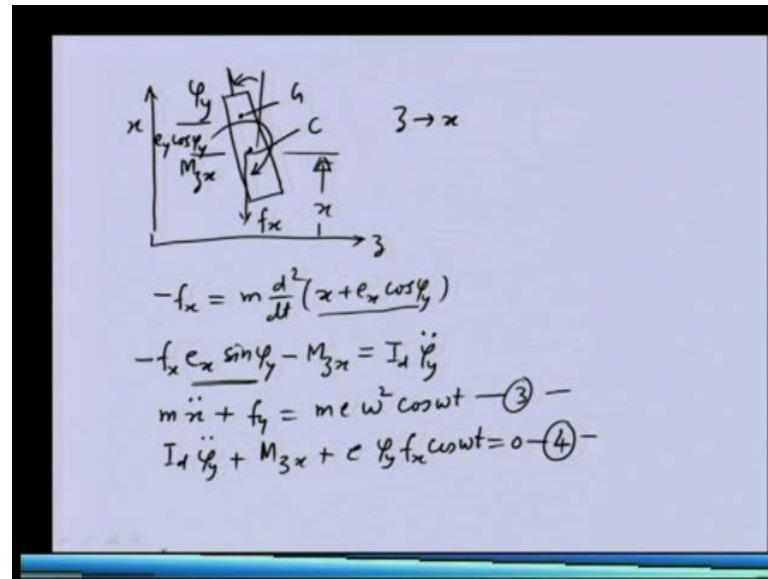 φy G
x C ʒ → x
ey cosφy
Mʒx
x
fx
ʒ
-fx = m d²/dt (x + ex cosφy)
-fx ex sinφy - Mʒx = Id φ̈y
mẍ + fy = m e ω² cosωt — ③ —
Id φ̈y + Mʒx + e φy fx cosωt = 0 — ④ —